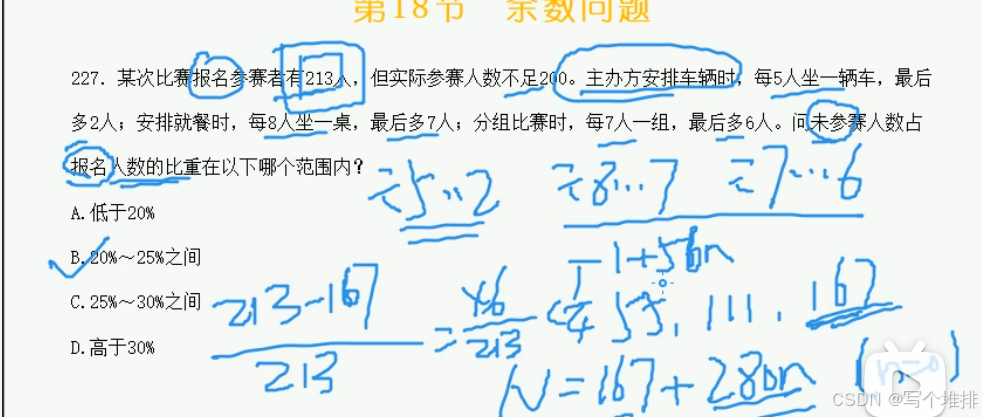 第18节 余数问题
227. 某次比赛报名参赛者有213人，但实际参赛人数不足200。主办方安排车辆时，每5人坐一辆车，最后
多2人；安排就餐时，每8人坐一桌，最后多7人；分组比赛时，每7人一组，最后多6人。问未参赛人数占
报名人数的比重在以下哪个范围内？
÷5…2 ÷8…7 ÷7…6
A.低于20%
B.20%～25%之间
-1+56n
C.25%～30%之间
213-167
213
=
46
213
<
1
4
55, 111, 167
D.高于30%
N=167+280n (n=0)
CSDN @写个堆排